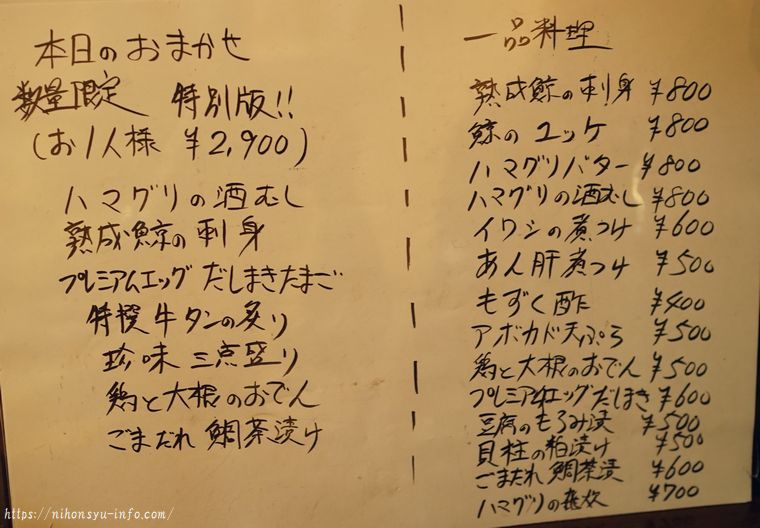 本日のおまかせ
数量限定 特別版!!
(お1人様 ¥2,900)
ハマグリの酒むし
熟成鯨の刺身
プレミアムエッグ だしまきたまご
特撰牛タンの炙り
珍味 三点盛り
鶏と大根のおでん
ごまだれ 鯛茶漬け
一品料理
熟成鯨の刺身 ¥800
鯨のユッケ ¥800
ハマグリバター ¥800
ハマグリの酒むし ¥800
イワシの煮つけ ¥600
あん肝煮つけ ¥500
もずく酢 ¥400
アボカド天ぷら ¥500
鶏と大根のおでん ¥500
プレミアムエッグだしまき ¥600
豆腐のもろみ漬 ¥500
貝柱の粕漬け ¥500
ごまだれ 鯛茶漬 ¥600
ハマグリの雑炊 ¥700
https://nihonsyu-info.com/